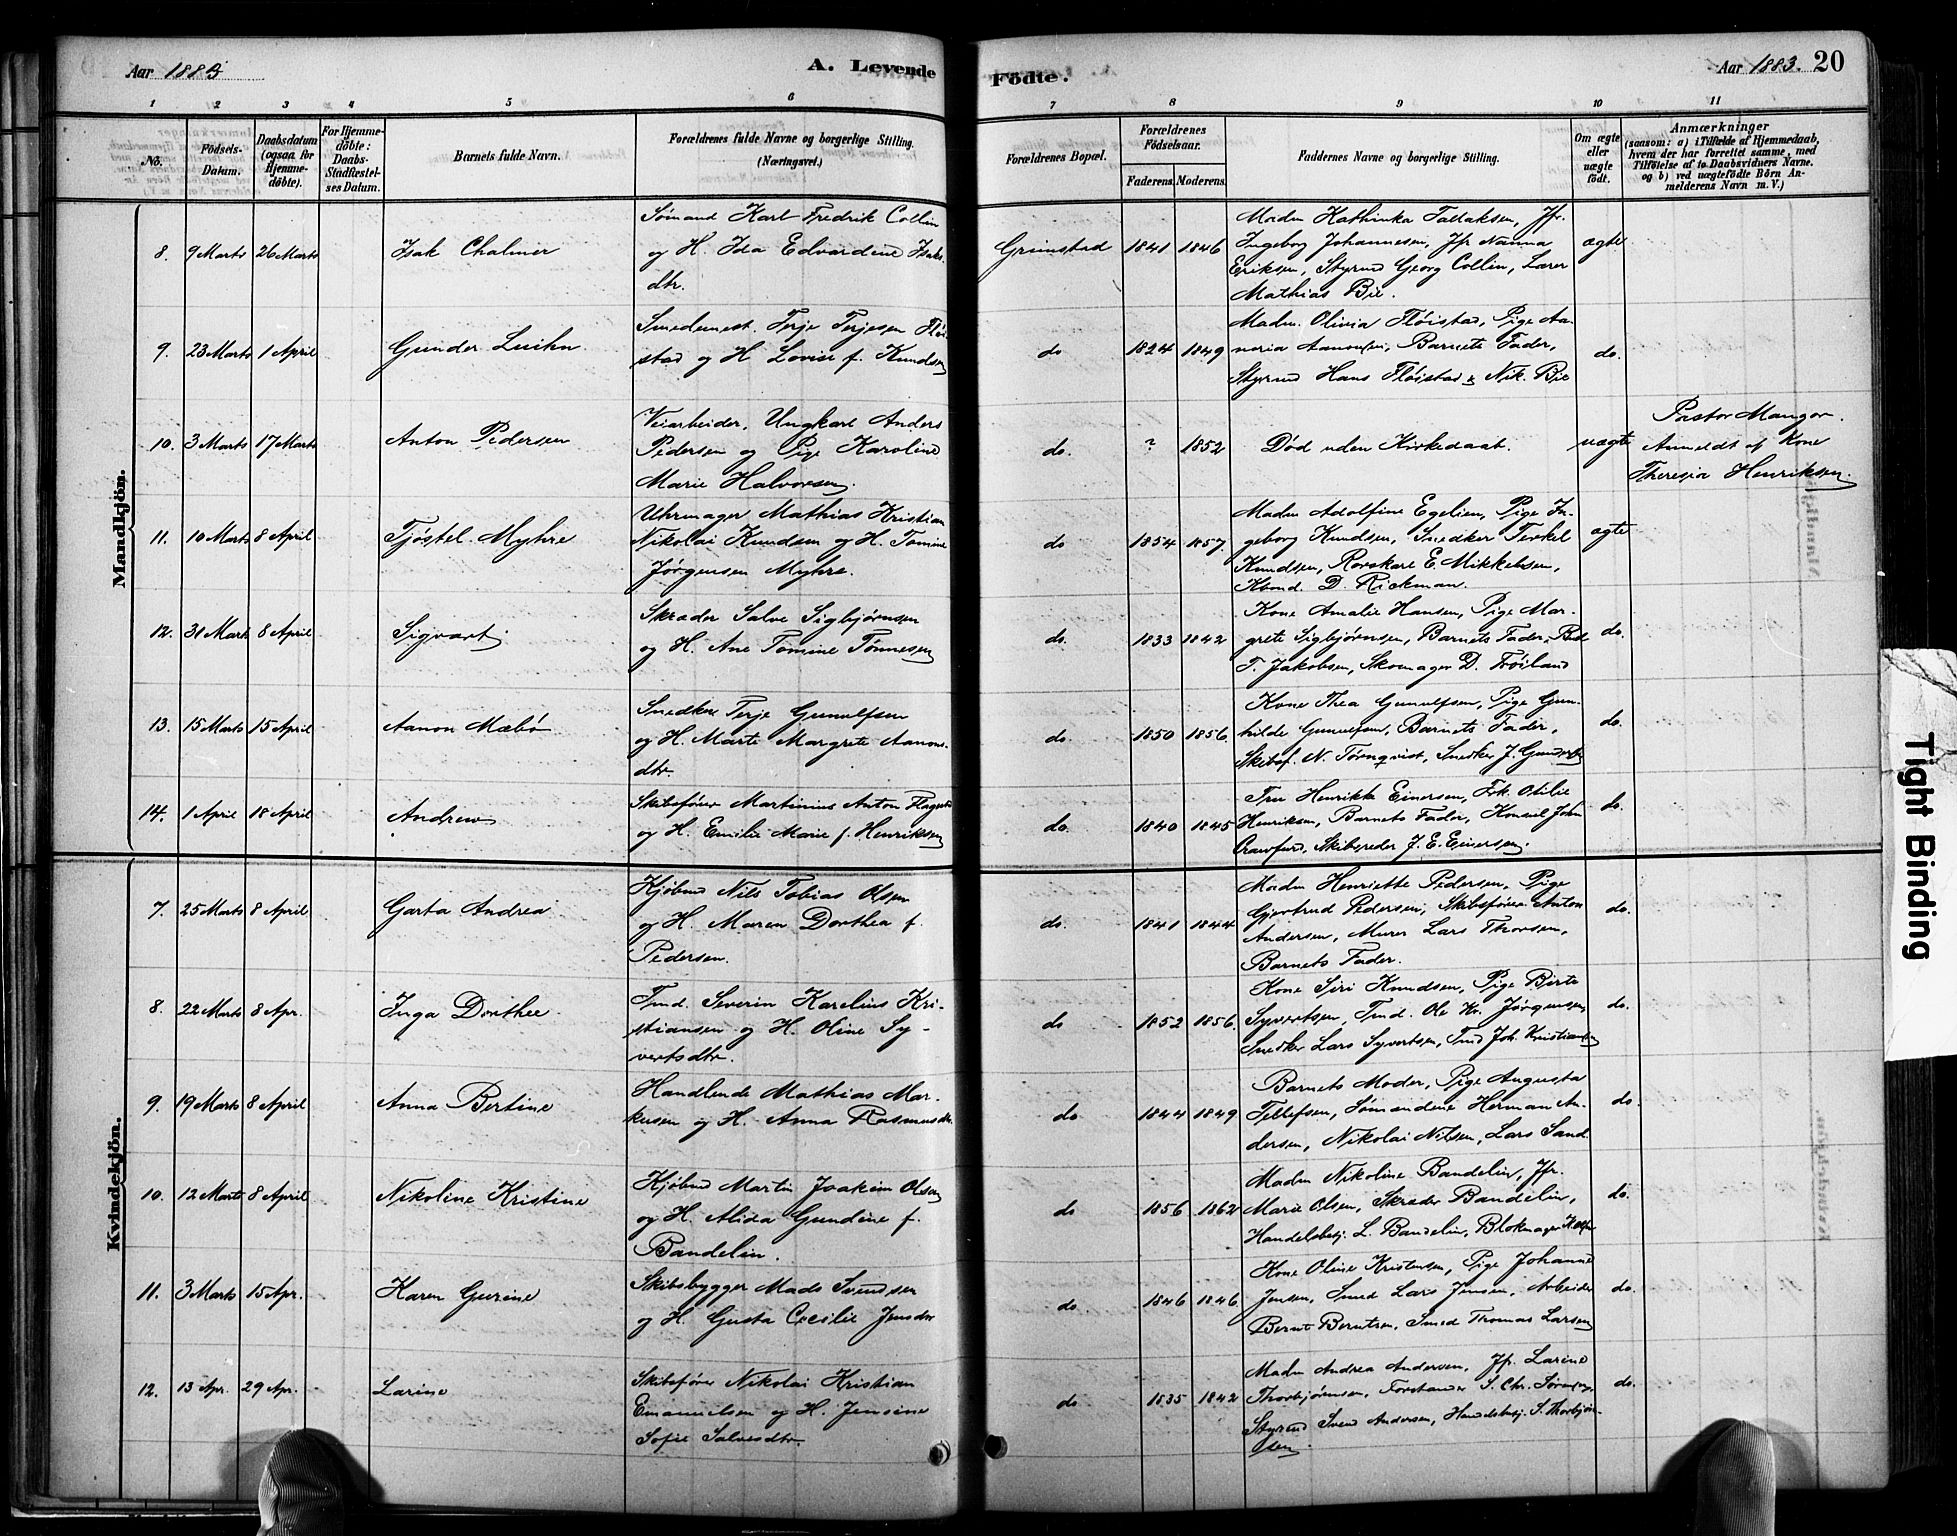 Aar 1883
A. Levende
1 2 3 4 5 6
No.
Födsels-
Datum.
Daabsdatum
(ogsaa for
Hjemme-
døbte).
For Hjemme-
døbte:
Daabs-
Stadfæstel-
ses Datum.
Barnets fulde Navn.
Forældrenes fulde Navne og borgerlige Stilling.
(Næringsvei.)
Mandkjön.
8. 9 Marts 26 Marts Isak Chalmer
Sømand Karl Fredrik Collin
og H. Ida Edvardine Isaks-
dtr.
9. 23 Marts 1 April Gunder
Smedemest. Terje Terjesen Fløi
stad og H. Lovise f. Knudsen
10. 3 Marts 17 Marts Anton Pedersen
Veiarbeider, Ungkarl Anders
Pedersen og Pige Karoline
Marie Halvorsen.
11. 10 Marts 8 April Tjøstel Myhre
Uhrmager Mathias Kristian
Nikolai Knudsen og H. Tomine
Jørgensen Myhre.
12. 31 Marts 8 April Sigvart
Skræder Salve Sigbjørnsen
og H. Ane Tomine Tønnesen
13. 15 Marts 15 April Aanon Mæbø
Snedker Terje Gunulfsen
og H. Marte Margrete Aanons-
dtr.
14. 1 April 18 April Andrew
Skibsfører Martinius Anton
og H. Emilie Marie f. Henriksen
Kvindekjön.
7. 25 Marts 8 April Garta Andrea
Kjøbmd Nils Tobias Olsen
og H. Maren Dorthea f.
Pedersen.
8. 22 Marts 8 Apr. Inga Dorthee
Tmd. Severin Karelius Kri-
stiansen og H. Oline Sy-
vertsdtr.
9. 19 Marts 8 April Anna Bertine
Handlende Mathias Mar-
kusen og H. Anna Rasmusdtr.
10. 12 Marts 8 April Nikoline Kristine
Kjøbmd Martin Joakim Olsen
og H. Alida Gundine f.
Bandelin.
11. 3 Marts 15 Apr. Karen Gurine
Skibsbygger Mads Svendsen
og H. Gusta Cecilie Jensdtr
12. 13 Apr. 29 Apr. Larine
Skibsfører Nikolai Kristian
Emanuelsen og H. Jensine
Sofie Salvesdtr.
Födte.
Aar 1883. 20
7 8 9 10 11
Forældrenes Bopæl.
Forældrenes
Födselsaar.
Faderens. Moderens.
Faddernes Navne og borgerlige Stilling.
Om ægte
eller
uægte
født.
Anmærkninger
(saasom: a) i Tilfælde af Hjemmedaab,
hvem der har forrettet samme, med
Tilføielse af to Daabsvidners Navne.
og b) ved uægtefödte Börn An-
melderens Navn m. V.)
Grimstad 1841 1846
Madm Kathinka Tallaksen, Jfr.
Ingeborg Johannesen, Jfr Nanna
Eriksen, Styrmd Georg Collin, Lærer
Mathias Bie.
ægte
do 1824 1849
Madm. Olivia Fløistad, Pige Aa-
neria Aanonsen, Barnets Fader,
Styrmd Hans Fløistad & Nik. Bie
do.
do. ? 1852
Død uden Kirkedaab.
uægte
Pastor Mangor.
Anmeldt af Kone
Theresia Henriksen.
do 1854 1857.
Madm Adolfine Egelien, Pige In-
geborg Knudsen, Snedker Terkel
Knudsen, Rorskarl E. Mikkelsen,
D. Rickman.
ægte
do. 1833 1842
Kone Amalie Hansen, Pige Mar-
grete Sigbjørnsen, Barnets Fader,
T. Jakobsen, Skomager D. Frøiland
do.
do 1850 1856.
Kone Thea Gunulfsen, Pige Gun-
hilde Gunulfsen, Barnets Fader,
Skibsf. N. Törnqvist, Snedker J.
do.
do. 1840 1845
Fru Henrikke Einersen, Frk. Otilie
Henriksen, Barnets Fader, Konsul John
Crawfurd, Skibsreder J. E. Einersen.
do.
do. 1841 1844
Madm Henriette Pedersen, Pige
Gjertrud Pedersen, Skibsfører Anton
Andersen, Murer Lars Thorsen,
Barnets Fader.
do.
do 1852 1856.
Kone Siri Knudsen, Pige Birte
Syvertsen, Tmd. Ole Kr. Jørgensen
Snedker Lars Syvertsen, Tmd Joh. Kristiansen
do.
do 1844 1849
Barnets Moder, Pige Augusta
Tellefsen, Sømændene Herman An-
dersen, Nikolai Nilsen, Lars Sand.
do.
do 1856 1862
Madm Nikoline Bandelin, Jfr.
Marie Olsen, Skræder Bandelin,
Handelsbetj. L. Bandelin, Blokmager
do.
do. 1846 1846
Kone Oline Kristensen, Pige Johanne
Jensen, Smed Lars Jensen, Arbeider
Bernt Berntsen, Smed Thomas Larsen
do.
do 1835 1842
Madm Andrea Andersen, Jfr. Larine
Thorbjørnsen, Forstander S. Chr. Sørensen
Styrmd Svend Andersen, Handelsbetj. S. Thorbjørn-
sen.
do.
Tight Binding